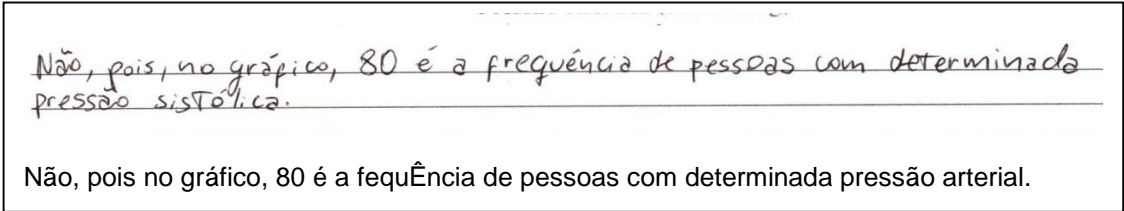 Não, pois, no gráfico, 80 é a frequência de pessoas com determinada
pressão sistólica.
Não, pois no gráfico, 80 é a fequÊncia de pessoas com determinada pressão arterial.